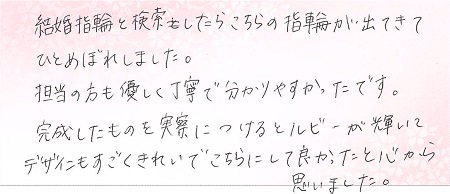 結婚指輪と検索をしたらこちらの指輪が出てきて
ひとめぼれしました。
担当の方も優しく丁寧で分かりやすかったです。
完成したものを実察につけるとルビーが輝いて
デザインもすごくきれいでこちらにして良かったと心から
思いました。